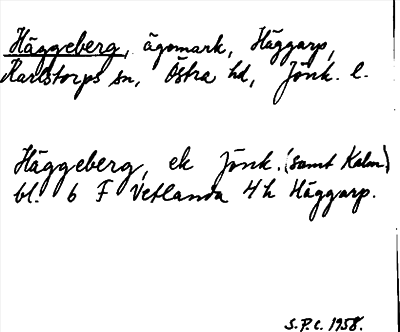 Häggeberg, ägomark, Häggarp,
Karlstorps sn, Östra hd, Jönk. l.
Häggeberg, ek Jönk. (samt Kalm)
bl. 6 F Vetlanda 4h Häggarp.
S.P.C. 1958.